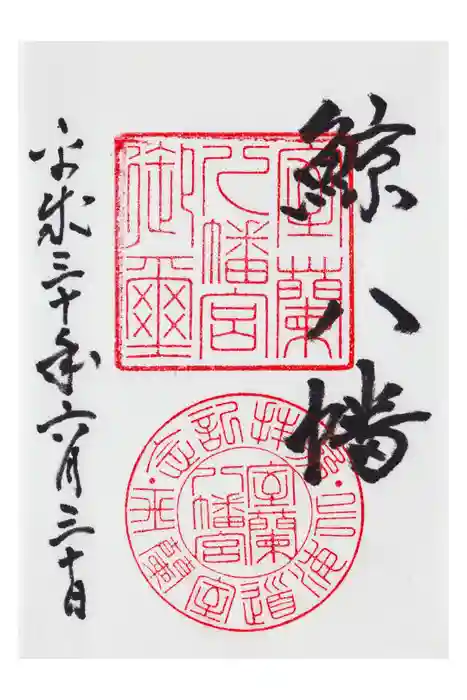 鯨八幡
室蘭
八幡宮
御璽
参拝記念
北海道室蘭
室蘭
八幡宮
平成三十年六月三十日